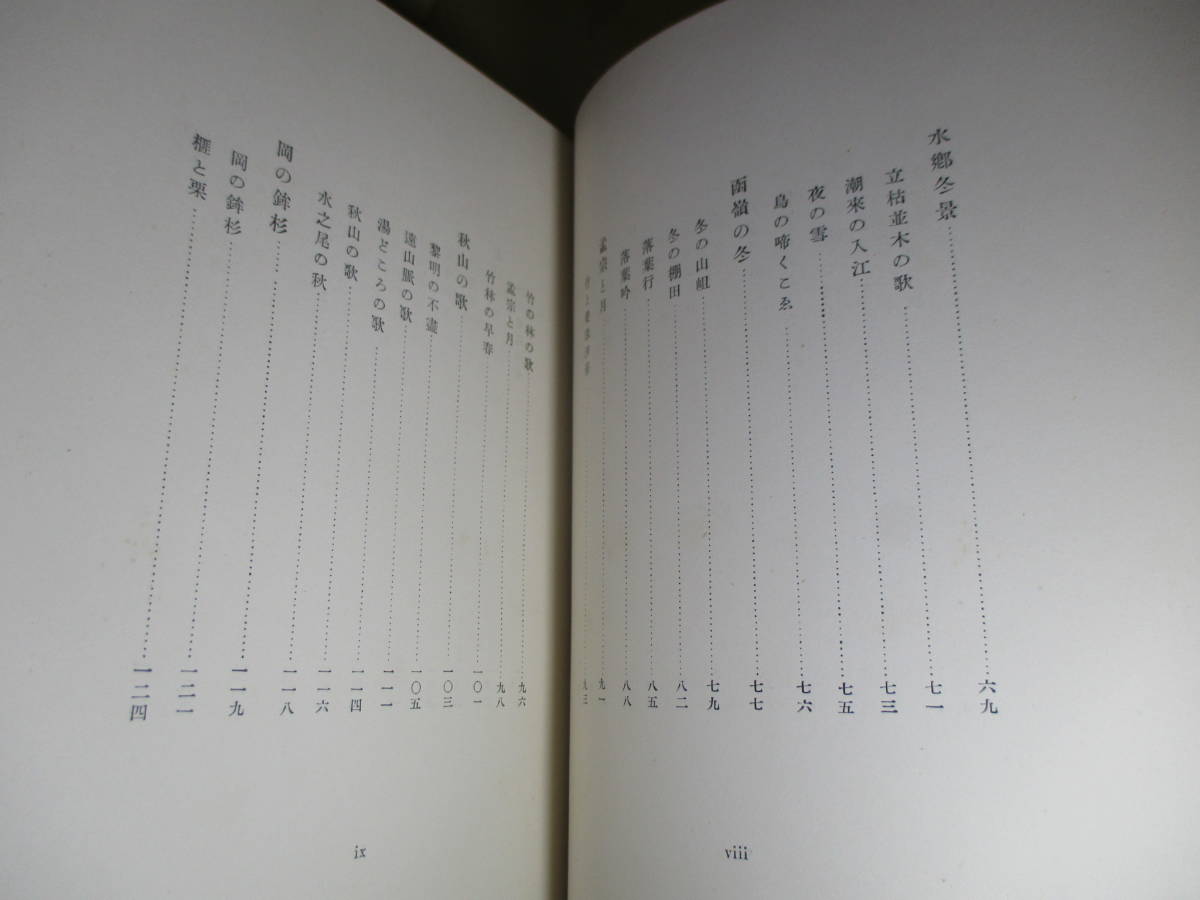 水鄕冬景……六九
立枯並木の歌……七一
潮來の入江……七三
夜の雪……七五
鳥の啼くこゑ……七六
函嶺の冬……七七
冬の山岨……七九
冬の棚田……八二
落葉行……八五
落葉吟……八八
孟宗と月……九一
九三
viii
竹の林の歌……九六
孟宗と月……九八
竹林の早春……一〇一
秋山の歌……一〇三
黎明の不盡……一〇五
遠山脈の歌……一一一
湯どころの歌……一一四
秋山の歌……一一六
水之尾の秋……一一八
岡の鉾杉……一一九
岡の鉾杉……一二一
榧と栗……一二四
ix